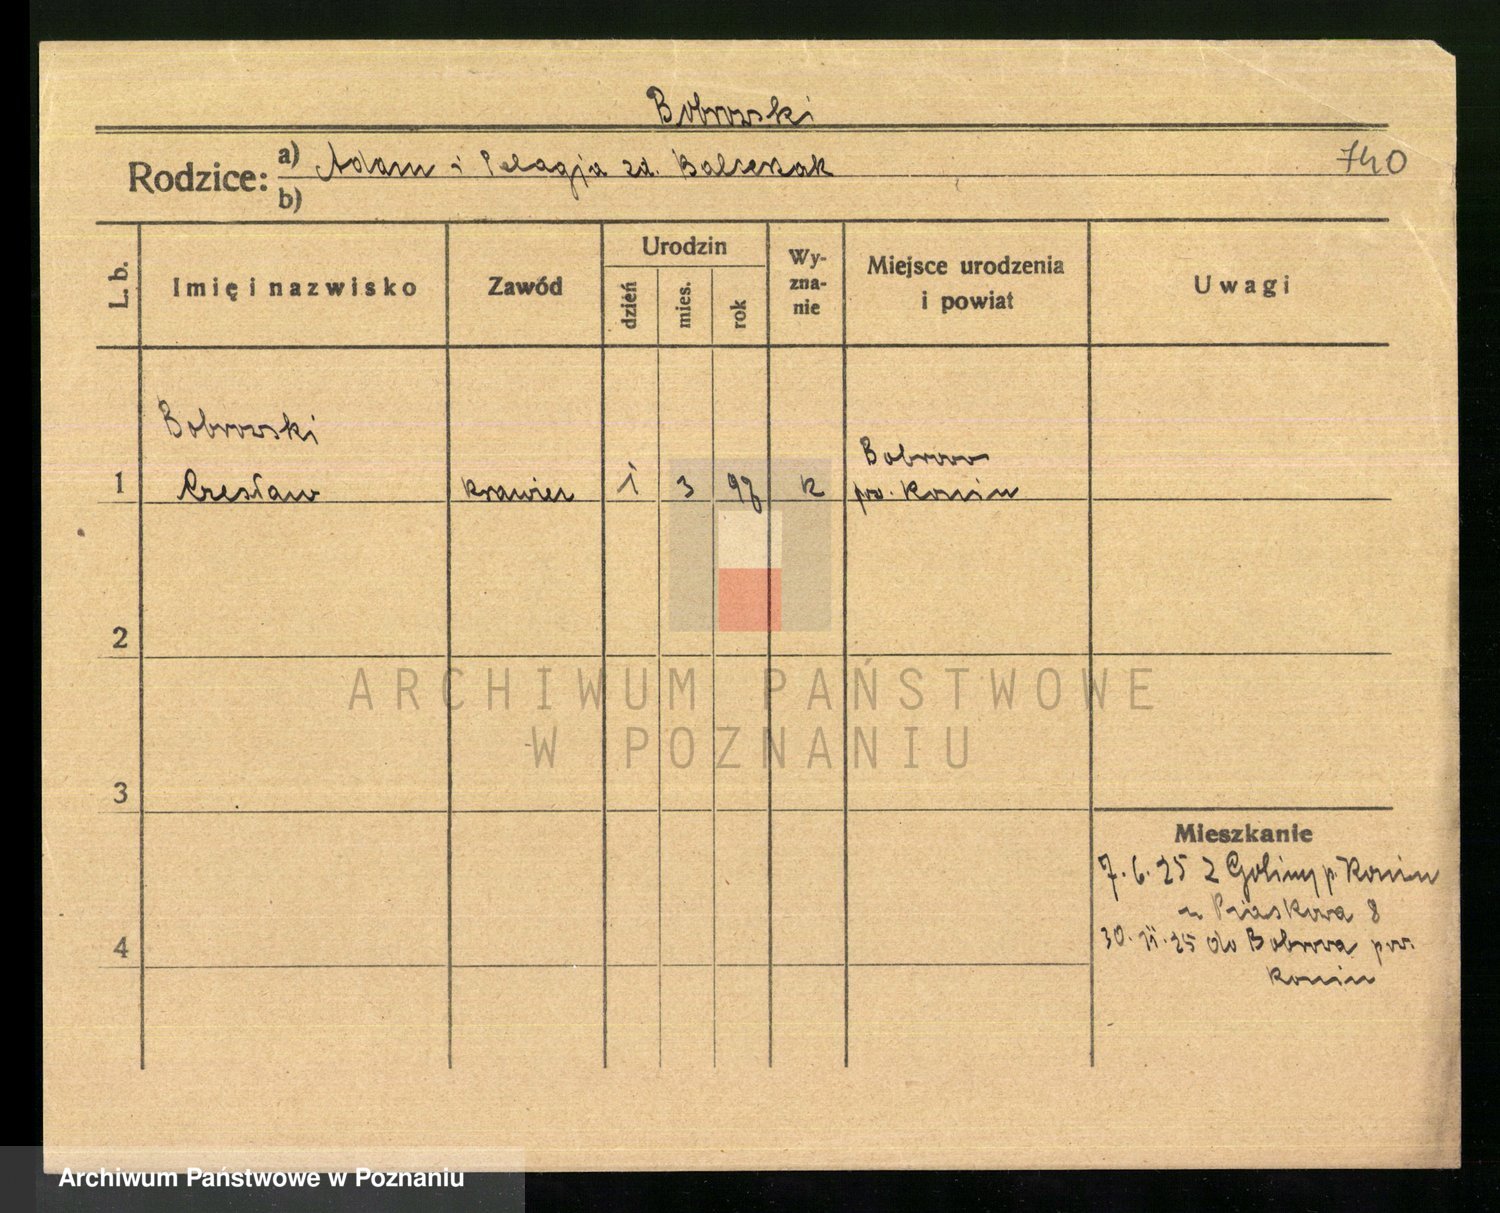 Bobrowski
Rodzice: a) Adam i Pelagja zd. Balcerzak
740
b)
L. b.
Imię i nazwisko
Zawód
Urodzin
dzień
mies.
rok
Wy-
zna-
nie
Miejsce urodzenia
i powiat
Uwagi
Bobrowski
1 Czesław krawiec 1 3 98 k
Bobrowo
pow. Konin
2
ARCHIWUM PAŃSTWOWE
W POZNANIU
3
Mieszkanie
7.6.25 z Goliny p. Konin
Piaskowa 8
30.11.25 do Bobrowa pow.
Konin
4
Archiwum Państwowe w Poznaniu